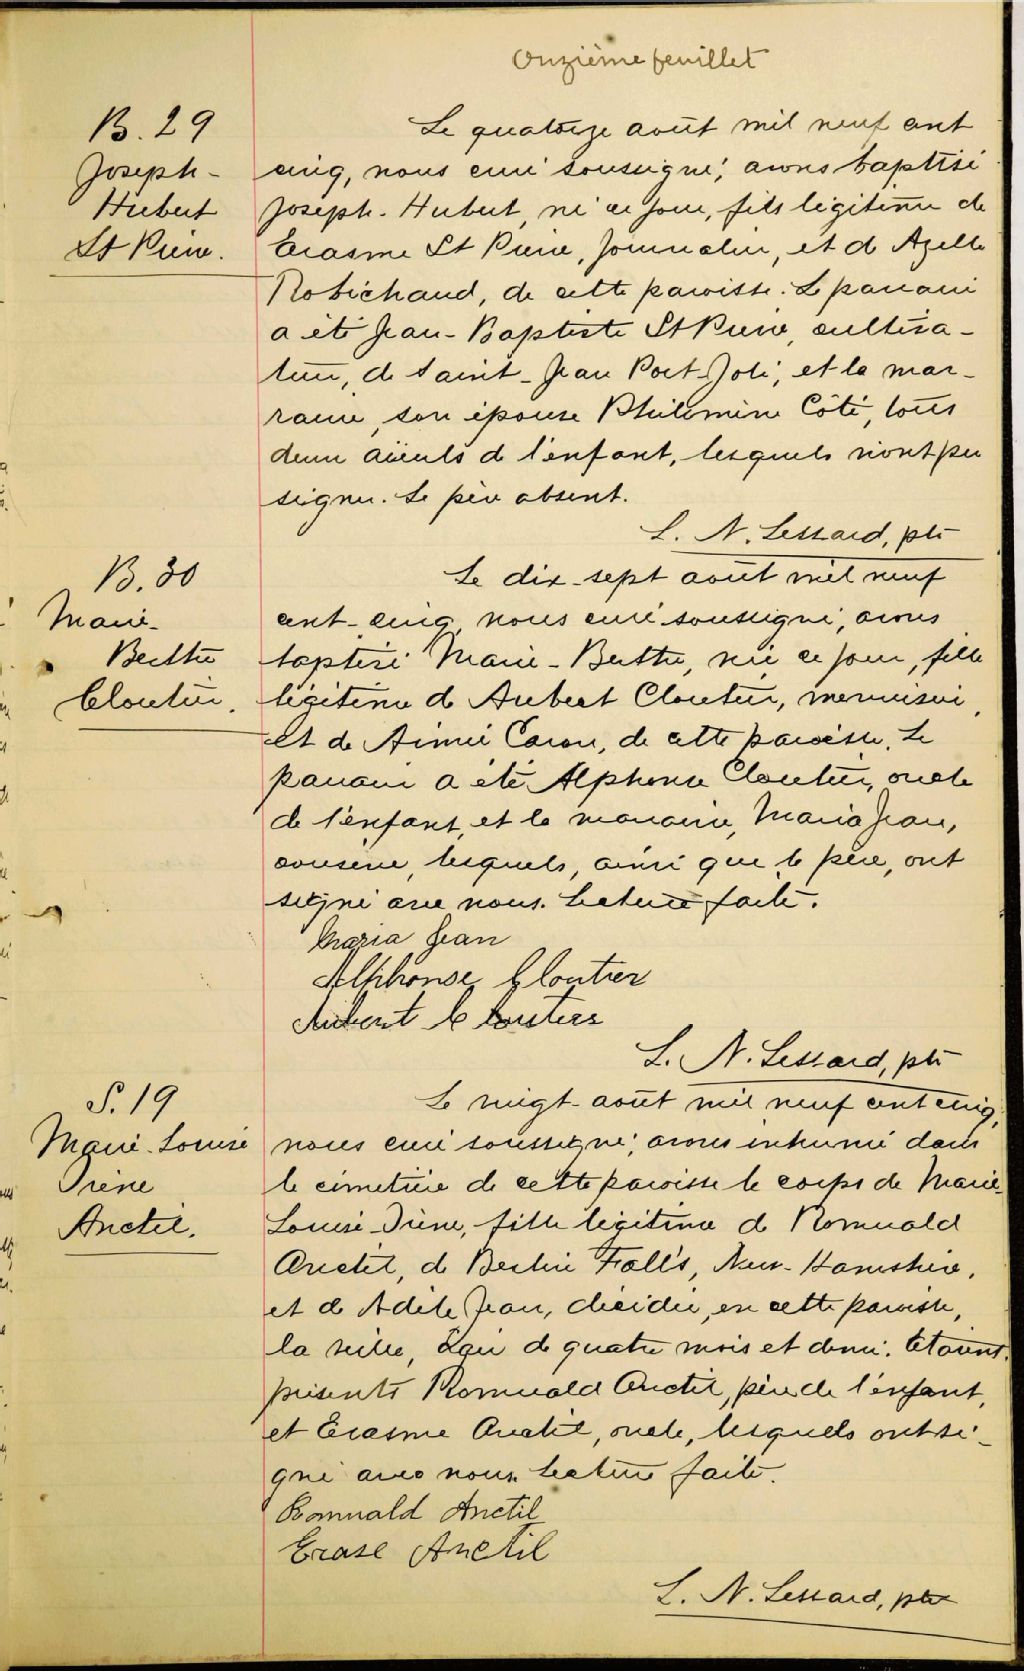 Onzième feuillet
B. 29
Joseph-
Hubert
St Pierre.
Le quatorze août mil neuf cent
cinq, nous curé soussigné, avons baptisé
Joseph-Hubert, né ce jour, fils légitime de
Erasme St Pierre, journalier, et de Azelle
Robichaud, de cette paroisse. Le parrain
a été Jean-Baptiste St Pierre, cultiva-
teur, de Saint-Jean Port-Joli, et la mar-
raine, son épouse Philomène Côté, tous
deux aïeuls de l'enfant, lesquels n'ont pu
signer. Le père absent.
L. N. Lessard, ptre
B. 30
Marie-
Berthe
Cloutier.
Le dix-sept août mil neuf
cent-cinq, nous curé soussigné, avons
baptisé Marie-Berthe, née ce jour, fille
légitime de Aubert Cloutier, menuisier,
et de Aimée Caron, de cette paroisse. Le
parrain a été Alphonse Cloutier, oncle
de l'enfant, et la marraine, Maria Jean,
cousine, lesquels, ainsi que le père, ont
signé avec nous. Lecture faite.
Maria Jean
Alphonse Cloutier
Aubert Cloutier
L. N. Lessard, ptre
S. 19
Marie-Louise
Irène
Anctil.
Le vingt août mil neuf cent cinq,
nous curé soussigné, avons inhumé dans
le cimetière de cette paroisse le corps de Marie-
Louise-Irène, fille légitime de Romuald
Anctil, de Berlin Fall's, New-Hamshire,
et de Adèle Jean, décédée, en cette paroisse,
la veille, âgée de quatre mois et demi. Etaient
présents Romuald Anctil, père de l'enfant,
et Erasme Anctil, oncle, lesquels ont si-
gné avec nous. Lecture faite.
Romuald Anctil
Erase Anctil
L. N. Lessard, ptre